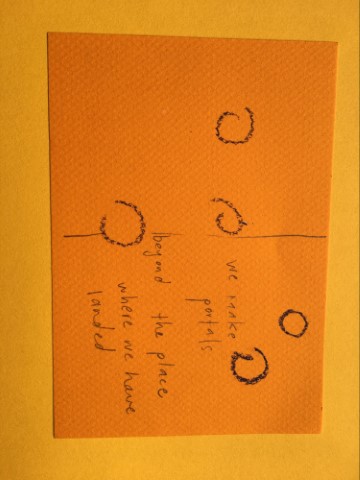 we make
portals
beyond the place
where we have
landed